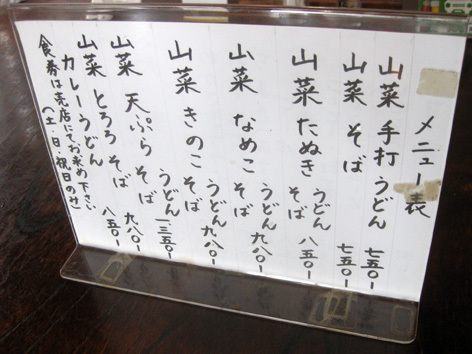 メニュー表
山菜 手打うどん 七五〇ー
山菜 そば 七五〇ー
山菜 たぬき うどん そば 八五〇ー
山菜 なめこ うどん そば 九八〇ー
山菜 きのこ うどん そば 九八〇ー
山菜 天ぷら うどん そば 一三五〇ー
山菜 とろろ そば 八五〇ー
カレーうどん
食券は売店にてお求め下さい
(土・日・祝日のみ)